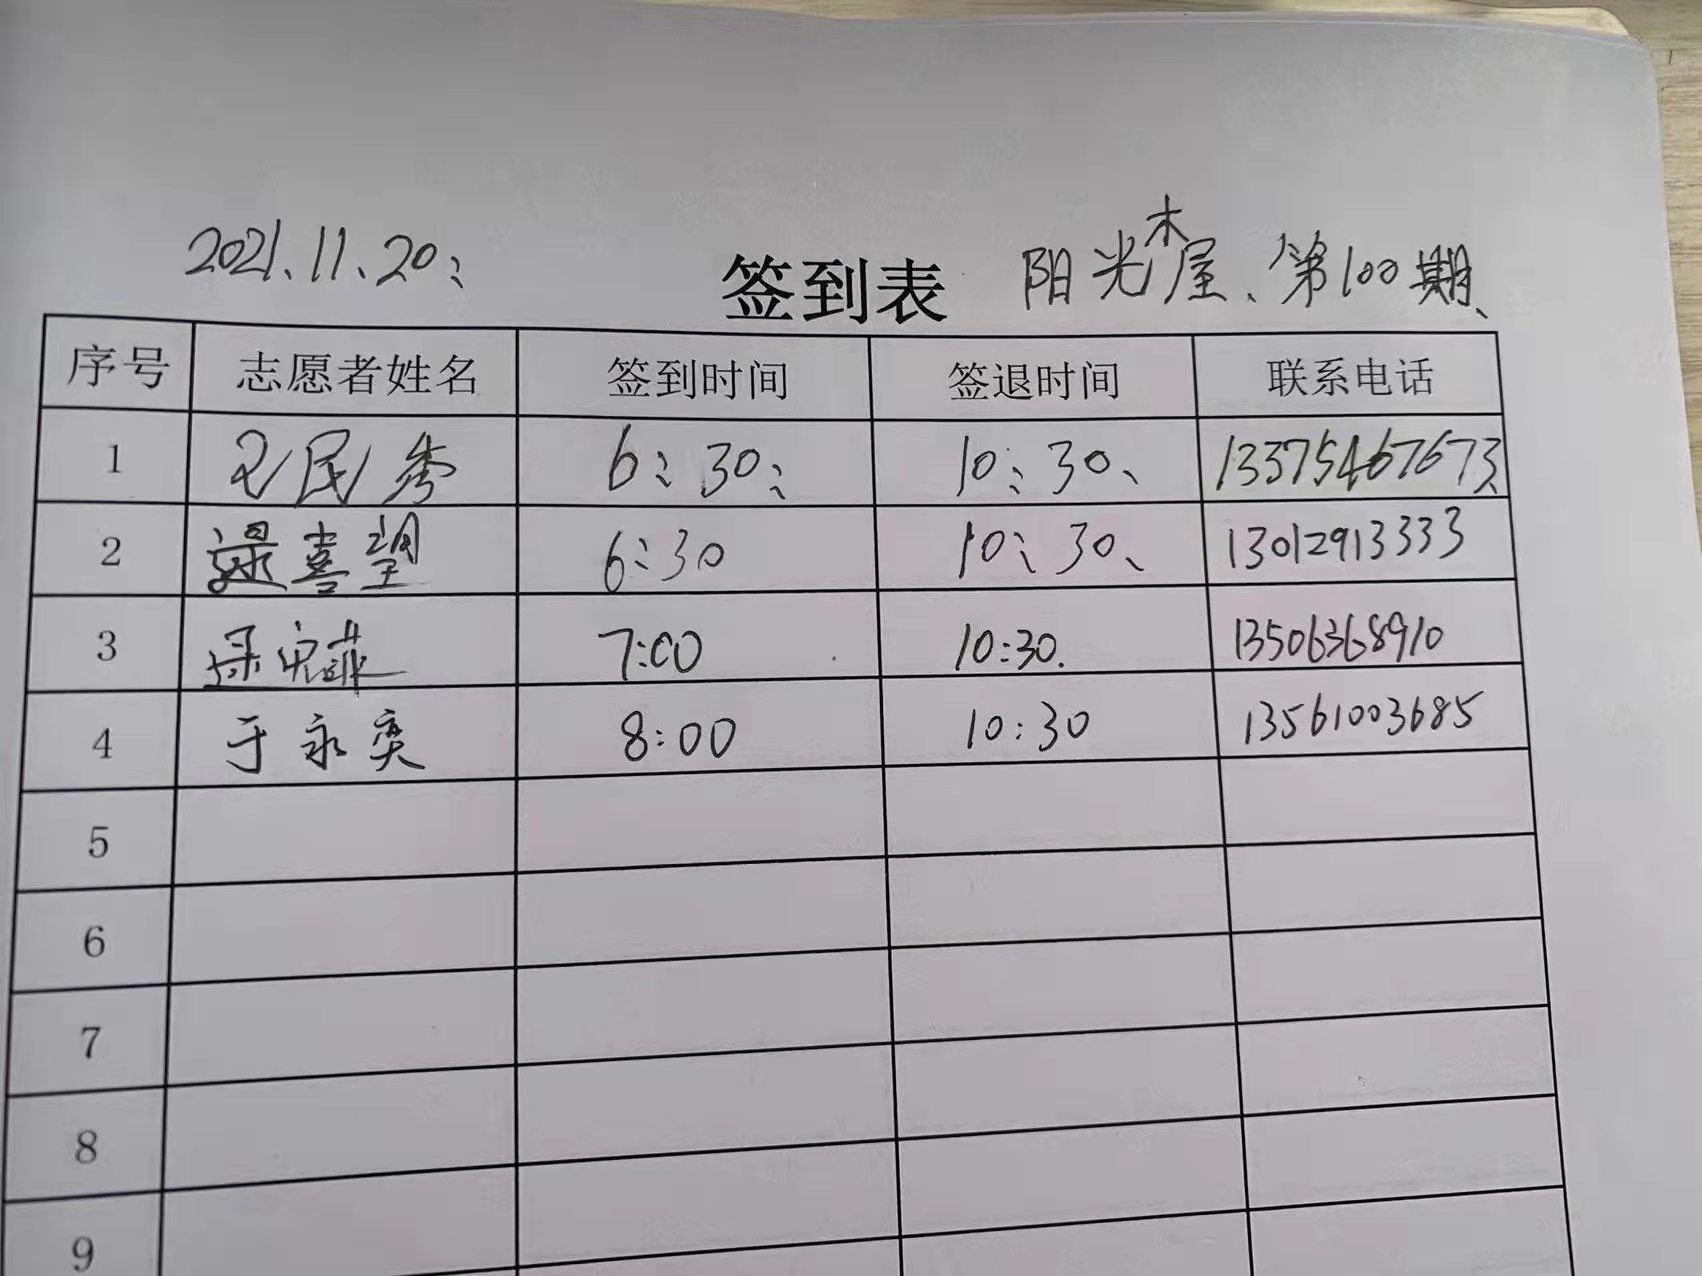 2021、11、20、
签到表
阳光木屋、第100期、
序号 志愿者姓名 签到时间 签退时间 联系电话
1 民秀 6:30: 10:30、 13375467673
2 喜望 6:30 10:30、 13012913333
3 7:00 10:30. 13506368910
4 于永奕 8:00 10:30 13561003685
5
6
7
8
9